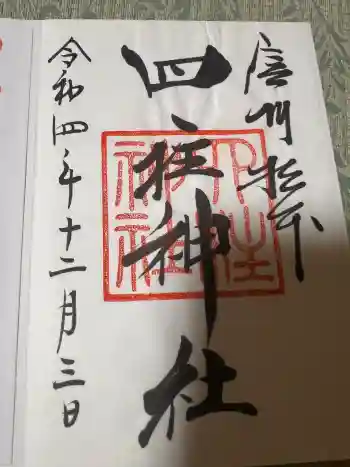 信州松本
四柱神社
令和四年十二月三日